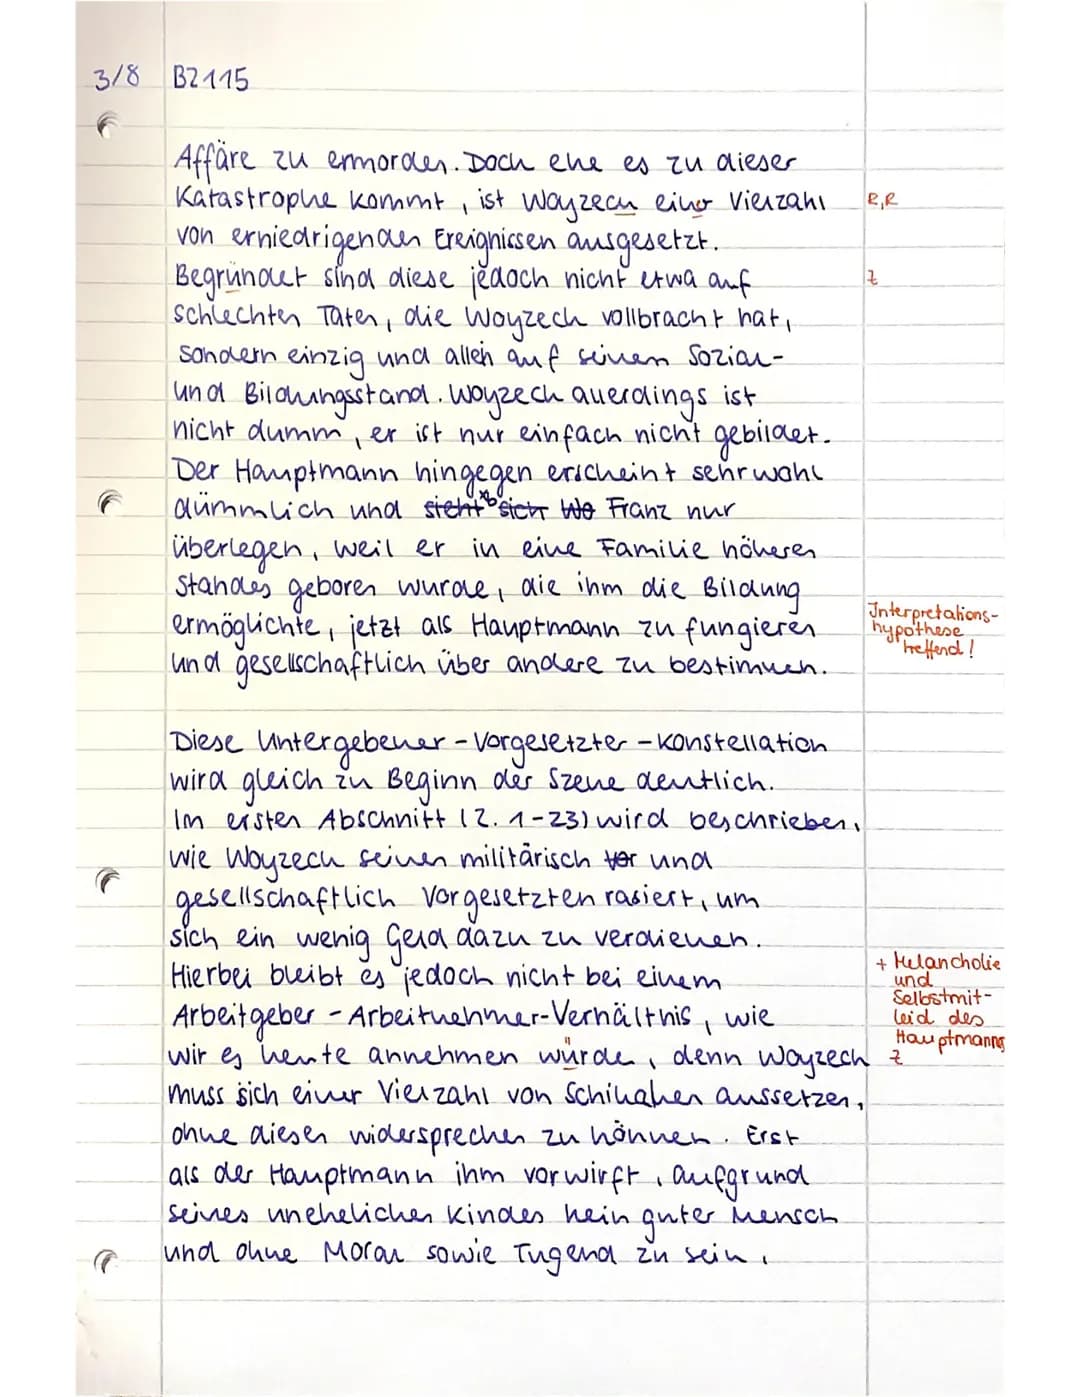 3/8 BZ115
Affäre zu ermorden. Doch ehe es zu dieser
Katastrophe kommt, ist Woyzeck einer Vielzahl
R,R
von erniedrigenden Ereignissen ausgesetzt.
Begründet sind diese jedoch nicht etwa auf
Z
schlechten Taten, die Woyzeck vollbracht hat,
sondern einzig und allein auf seinem Sozial-
und Bildungsstand. Woyzeck allerdings ist
nicht dumm, er ist nur einfach nicht gebildet.
Der Hauptmann hingegen erscheint sehr wohl
dümmlich und steht sich Wo Franz nur
überlegen, weil er in eine Familie höheren
Standes geboren wurde, die ihm die Bildung
ermöglichte, jetzt als Hauptmann zu fungieren
und gesellschaftlich über andere zu bestimmen.
Interpretations-
hypothese
treffend!
Diese Untergebener-Vorgesetzter-Konstellation
wird gleich zu Beginn der Szene deutlich.
Im ersten Abschnitt (Z. 1-23) wird beschrieben,
wie Woyzeck seinen militärisch vor und
gesellschaftlich Vorgesetzten rasiert, um
sich ein wenig Geld dazu zu verdienen.
Hierbei bleibt es jedoch nicht bei einem
Arbeitgeber-Arbeitnehmer-Verhältnis, wie
wir es heute annehmen würden, denn Woyzeck
+ Melancholie
und
Selbstmit-
leid des
Hauptmanns
Z
muss sich einer Vielzahl von Schikanen aussetzen,
ohne diesen widersprechen zu können. Erst
als der Hauptmann ihm vorwirft, aufgrund
seines unehelichen Kindes kein guter Mensch
und ohne Moral sowie Tugend zu sein,